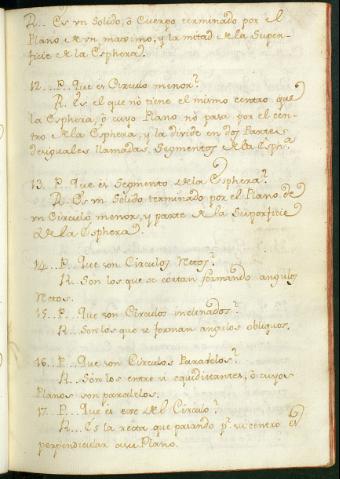 R... Es un Solido, ò Cuerpo terminado por el
Plano de un maximo, y la mitad de la Super-
ficie de la Esphera.
12... P.. Que es Circulo menor?
R. Es el que nò tiene el mismo centro que
la Esphera, ò cuyo Plano nò pasa por el cen-
tro de la Esphera, y la divide en dos Partes
desiguales llamadas Segmentos de la Esph.ª
13. P.. Que es Segmento de la Esphera?
R. Es un Solido terminado por el Plano de
un Circulo menor, y parte de la Superficie
de la Esphera.
14... P.. Que son Circulos Rectos?
R. Son los que se cortan formando angulos
Rectos.
15... P.. Que son Circulos inclinados?
R... Son los que se forman angulos obliquos.
16... P.. Que son Circulos Paralelos?
R.. Sòn los entre si equidistantes, ò cuyos
Planos son paralelos.
17... P... Que es exe del Circulo?
R... Es la recta que pasando pr. su centro es
perpendicular a su Plano.